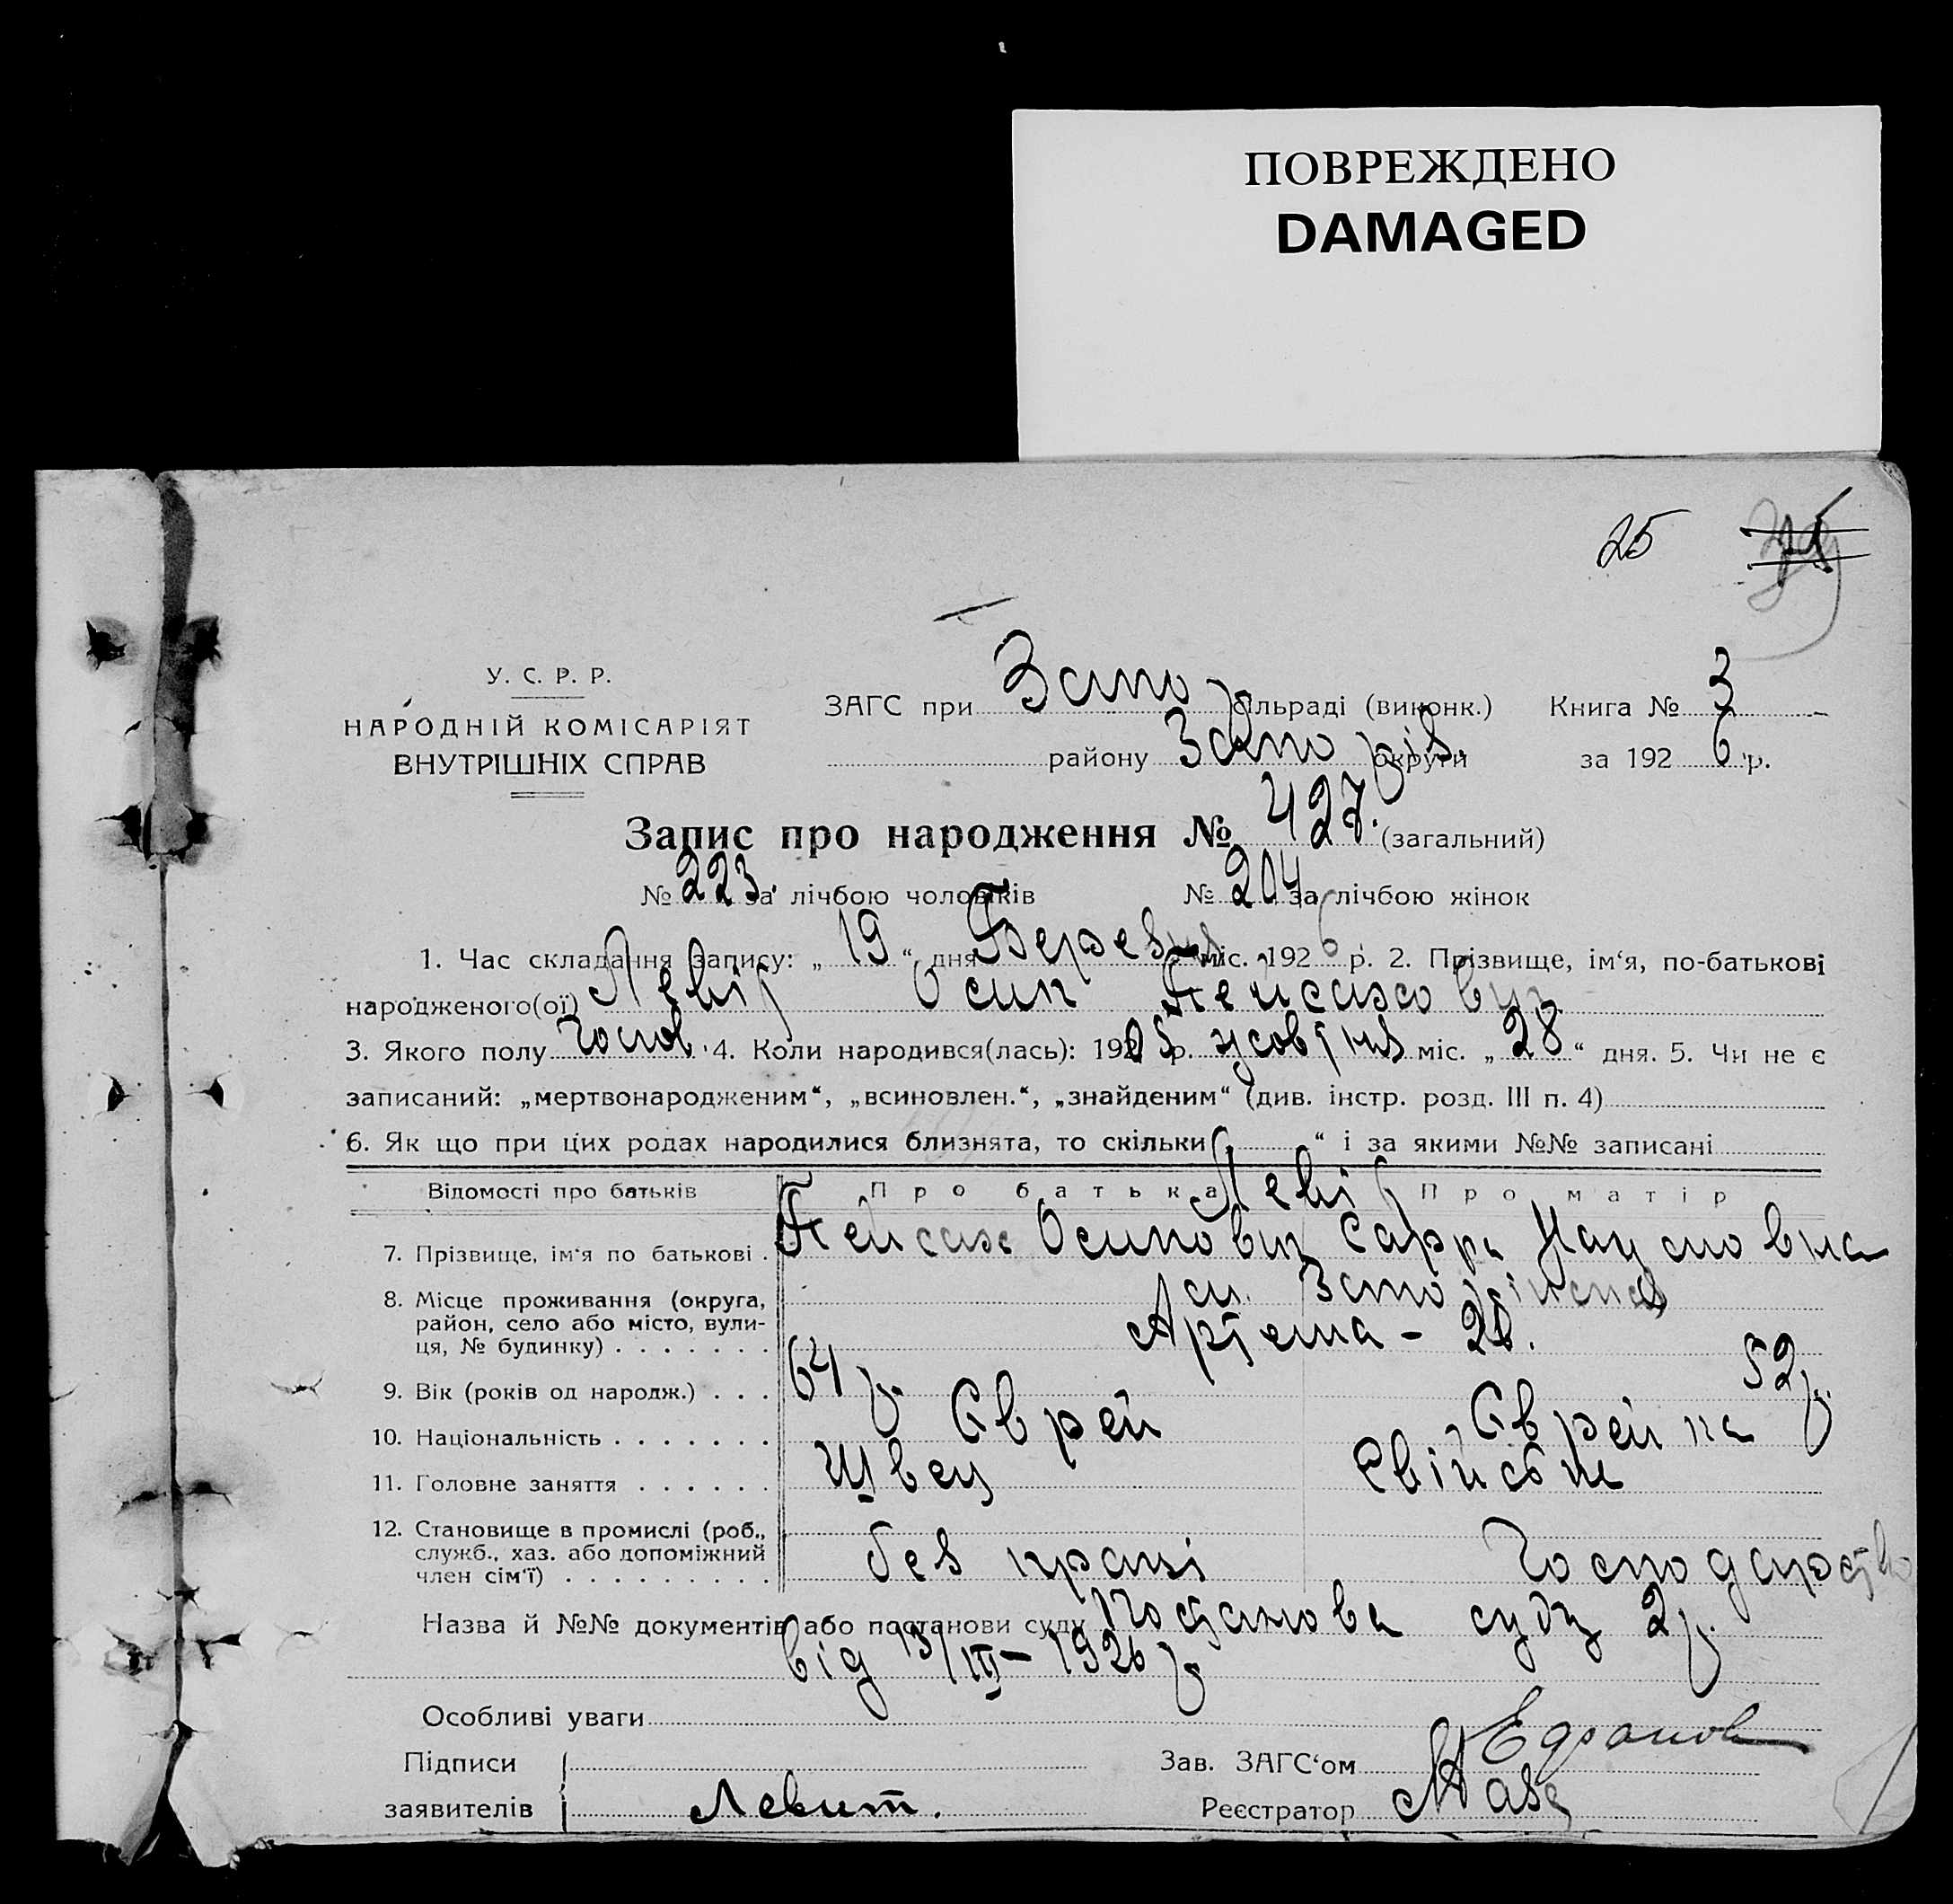 ПОВРЕЖДЕНО
DAMAGED
25
У. С. Р. Р.
НАРОДНІЙ КОМІСАРІЯТ
ВНУТРІШНІХ СПРАВ
ЗАГС при Запор сільраді (виконк.) Книга № 3
району Запоріз. округи за 1926 р.
Запис про народження № 427. (загальний)
№ 223. за лічбою чоловіків № 204 за лічбою жінок
1. Час складання запису: „19“ дня Березня міс. 1926 р. 2. Прізвище, ім‘я, по-батькові
народженого(ої) Левіт Осип Пейсахович
3. Якого полу чолов. 4. Коли народився(лась): 1905 р. жовтня міс. „28“ дня. 5. Чи не є
записаний: „мертвонародженим“, „всиновлен.“, „знайденим“ (див. інстр. розд. III п. 4)
6. Як що при цих родах народилися близнята, то скільки “ і за якими №№ записані
Відомості про батьків Про батька Левіт Про матір
7. Прізвище, ім‘я по батькові . Пейсах Осипович Сарра Наумовна
8. Місце проживання (округа, район, село або місто, вулиця, № будинку) . . . . . . . м. Запоріжжя
Артема - 28.
9. Вік (років од народж.) . . . 64 р. 52 р.
10. Національність . . . . . . . Єврей Єврейка
11. Головне заняття . . . . . . Швец Свійське
12. Становище в промислі (роб., служб., хаз. або допоміжний член сім‘ї) . . . . . . . . . без праці Господарство
Назва й №№ документів або постанови суду Постанова суду 2 р.
від 13/III – 1926 р
Особливі уваги
Підписи Зав. ЗАГС‘ом
заявителів Левит. Реєстратор